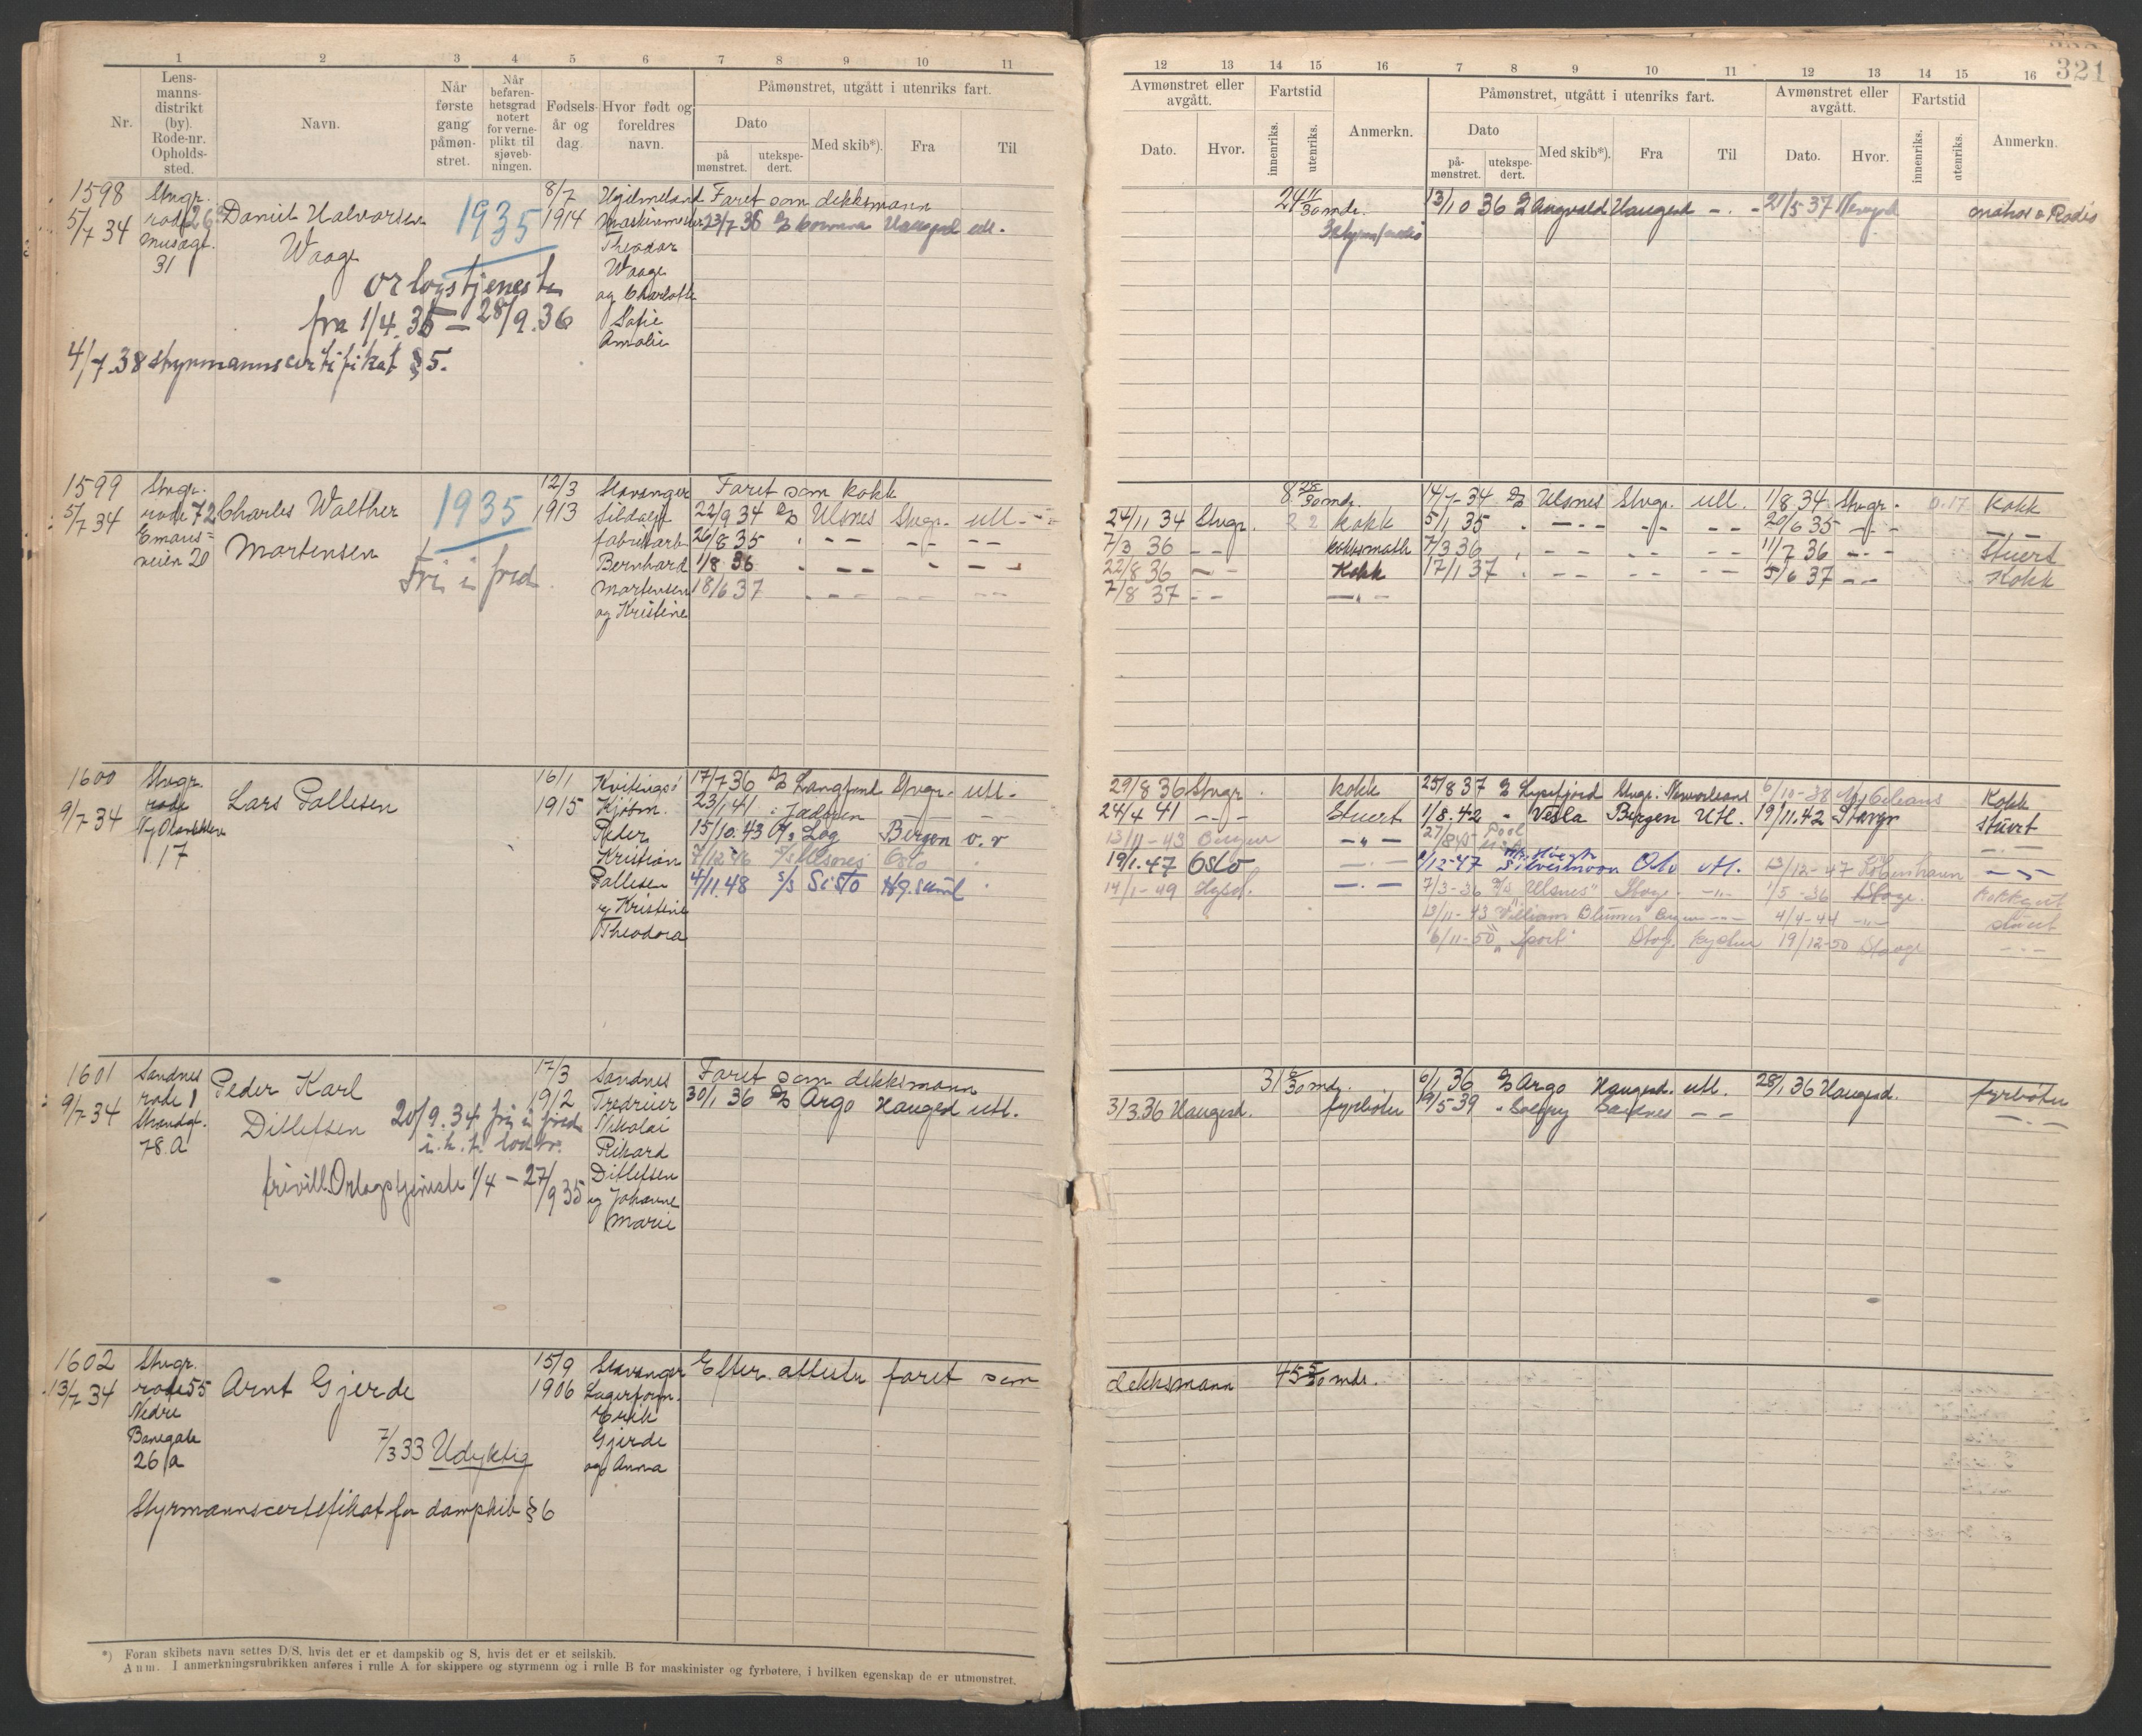 321
1 2 3 4 5 6 7 8 9 10 11
Nr.
Lens-
manns-
distrikt
(by).
Rode-nr.
Opholds-
sted.
Navn.
Når
første
gang
påmøn-
stret.
Når
befaren-
hetsgrad
notert
for verne-
plikt til
sjøveb-
ningen.
Fødsels-
år og
dag.
Hvor født og
foreldres
navn.
Påmønstret, utgått i utenriks fart.
Dato
på
mønstret.
utekspe-
dert.
Med skib*).
Fra
Til
1598 Stvgr. 8/7 Hjelmeland Faret som dekksmann
5/7 34 rode 26 Daniel Halvorsen 1935 1914 Maskinmester 23/7 36 Haugesd utl.
Musegt. Waage Theodor
31 Waage
orlogstjeneste og Charlotte
fra 1/4.35 – 28/9.36 Sofie
Amalie
4/7.38 styrmannscertifikat §5.
1599 Stvgr. 12/3 Stavanger Faret som kokk
5/7 34 rode 72 Charles Walther 1935 1913 Sildolje 22/9 34 D/S Ulsnes Stvgr. utl. -
Emaus= Martensen fabrikarb 26/8 35 - - - - - -
veien 20 Fri i fred. Bernhard 1/8 36 - - - - - -
Martensen 18/6 37 - - - - - -
og Kristine
1600 Stvgr. 16/1 Kvitingsö 17/7 36 D/S Langfond Stvgr. utl.
9/7 34 rode Lars Pallesen 1915 Kjøtm. 23/1 41 - Jadaren - -
Ny Olavskleiv Peder 15/10.43 Log Bergen v.v
17 Kristian 7/12.46 S/S Ulsnes Oslo
Pallesen 4/11.48 S/S Sisto Hg.sund
og Kristine
Theodora
1601 Sandnes 17/3 Sandnes Faret som dekksmann
9/7 34 rode 1 Peder Karl 1912 Tredreier 30/1 36 D/S Argo Haugesd utl.
Strandgt. Ditlefsen 20/9.34 fri i fred Nikolai
78.A i.h.t. lodtr. Rikard
frivill. Orlogstjeneste 1/4 – 27/9 35 Ditlefsen
og Johanne
Marie
1602 Stvgr. 15/9 Stavanger Efter attester faret som
13/7 34 rode 55 Arnt Gjerde 1906 Lagerform.
Nedre Erik
Banegate 7/3 33 Udyktig Gjerde
26/a og Anna
Styrmannscertefikat for dampskib §6
*) Foran skibets navn settes D/S, hvis det er et dampskib og S, hvis det er et seilskib.
Anm. I anmerkningsrubrikken anføres i rulle A for skippere og styrmenn og i rulle B for maskinister og fyrbøtere, i hvilken egenskap de er utmønstret.
12 13 14 15 16 7 8 9 10 11 12 13 14 15 16
Avmønstret eller
avgått.
Dato.
Hvor.
Fartstid
innenriks.
utenriks.
Anmerkn.
Påmønstret, utgått i utenriks fart.
Dato
på-
mønstret.
utekspe-
dert.
Med skib*).
Fra
Til
Avmønstret eller
avgått.
Dato.
Hvor.
Fartstid
innenriks.
utenriks.
Anmerkn.
24 11/30 mdr. 13/10 36 D/S Augvald Haugesd - . - 21/5 37 matros o Radio
8 28/30 mdr. 14/7-34 D/S Ulsnes Stvgr. utl. 1/8 34 Stvgr. 0.17 Kokk
24/11 34 Stvgr. 2 2 kokk 5/1 35 - - - - - - 20/6 35 - - - -
7/3 36 - - kokksmath 7/3 36 - - - - - - 11/7 36 - - - Stuert
22/8 36 - - Kokk 17/1 37 - - - - - - 5/6 37 - - Kokk
7/8 37 - - - " -
29/8 36 Stvgr. kokk 25/8 37 D/S Lysefjord Stvgr. Neworleans 6/10-38 N. Orleans Kokk
24/4 41 - - - Stuert 1/8.42 - Vesla Bergen Utl. 19/11.42 Stavgr stuert
13/11-43 Bergen - " - 27/8 45 Pool - . -
19/1.47 Oslo - . - 9/12-47 Silvestmoon Oslo utl. 13/12-47 Köbenhavn - " -
14/1-49 - . - 7/3-36 D/S "Ulsnes" Stvgr. - " - 1/5-36 Stvgr.
13/11-43 William Blumer Bergen - - 4/4-44 - " - stuert
6/11-50 "Sport" Stvg. kysten 19/12-50 Stavgr - . -
31 6/30 mdr. 6/1 36 D/S Argo Haugesd. utl. 28/1 36 Haugesd. fyrbøter
3/3.36 Haugesd. fyrbøter 19/5 39 - - - - . -
dekksmann 45 5/30 mdr.